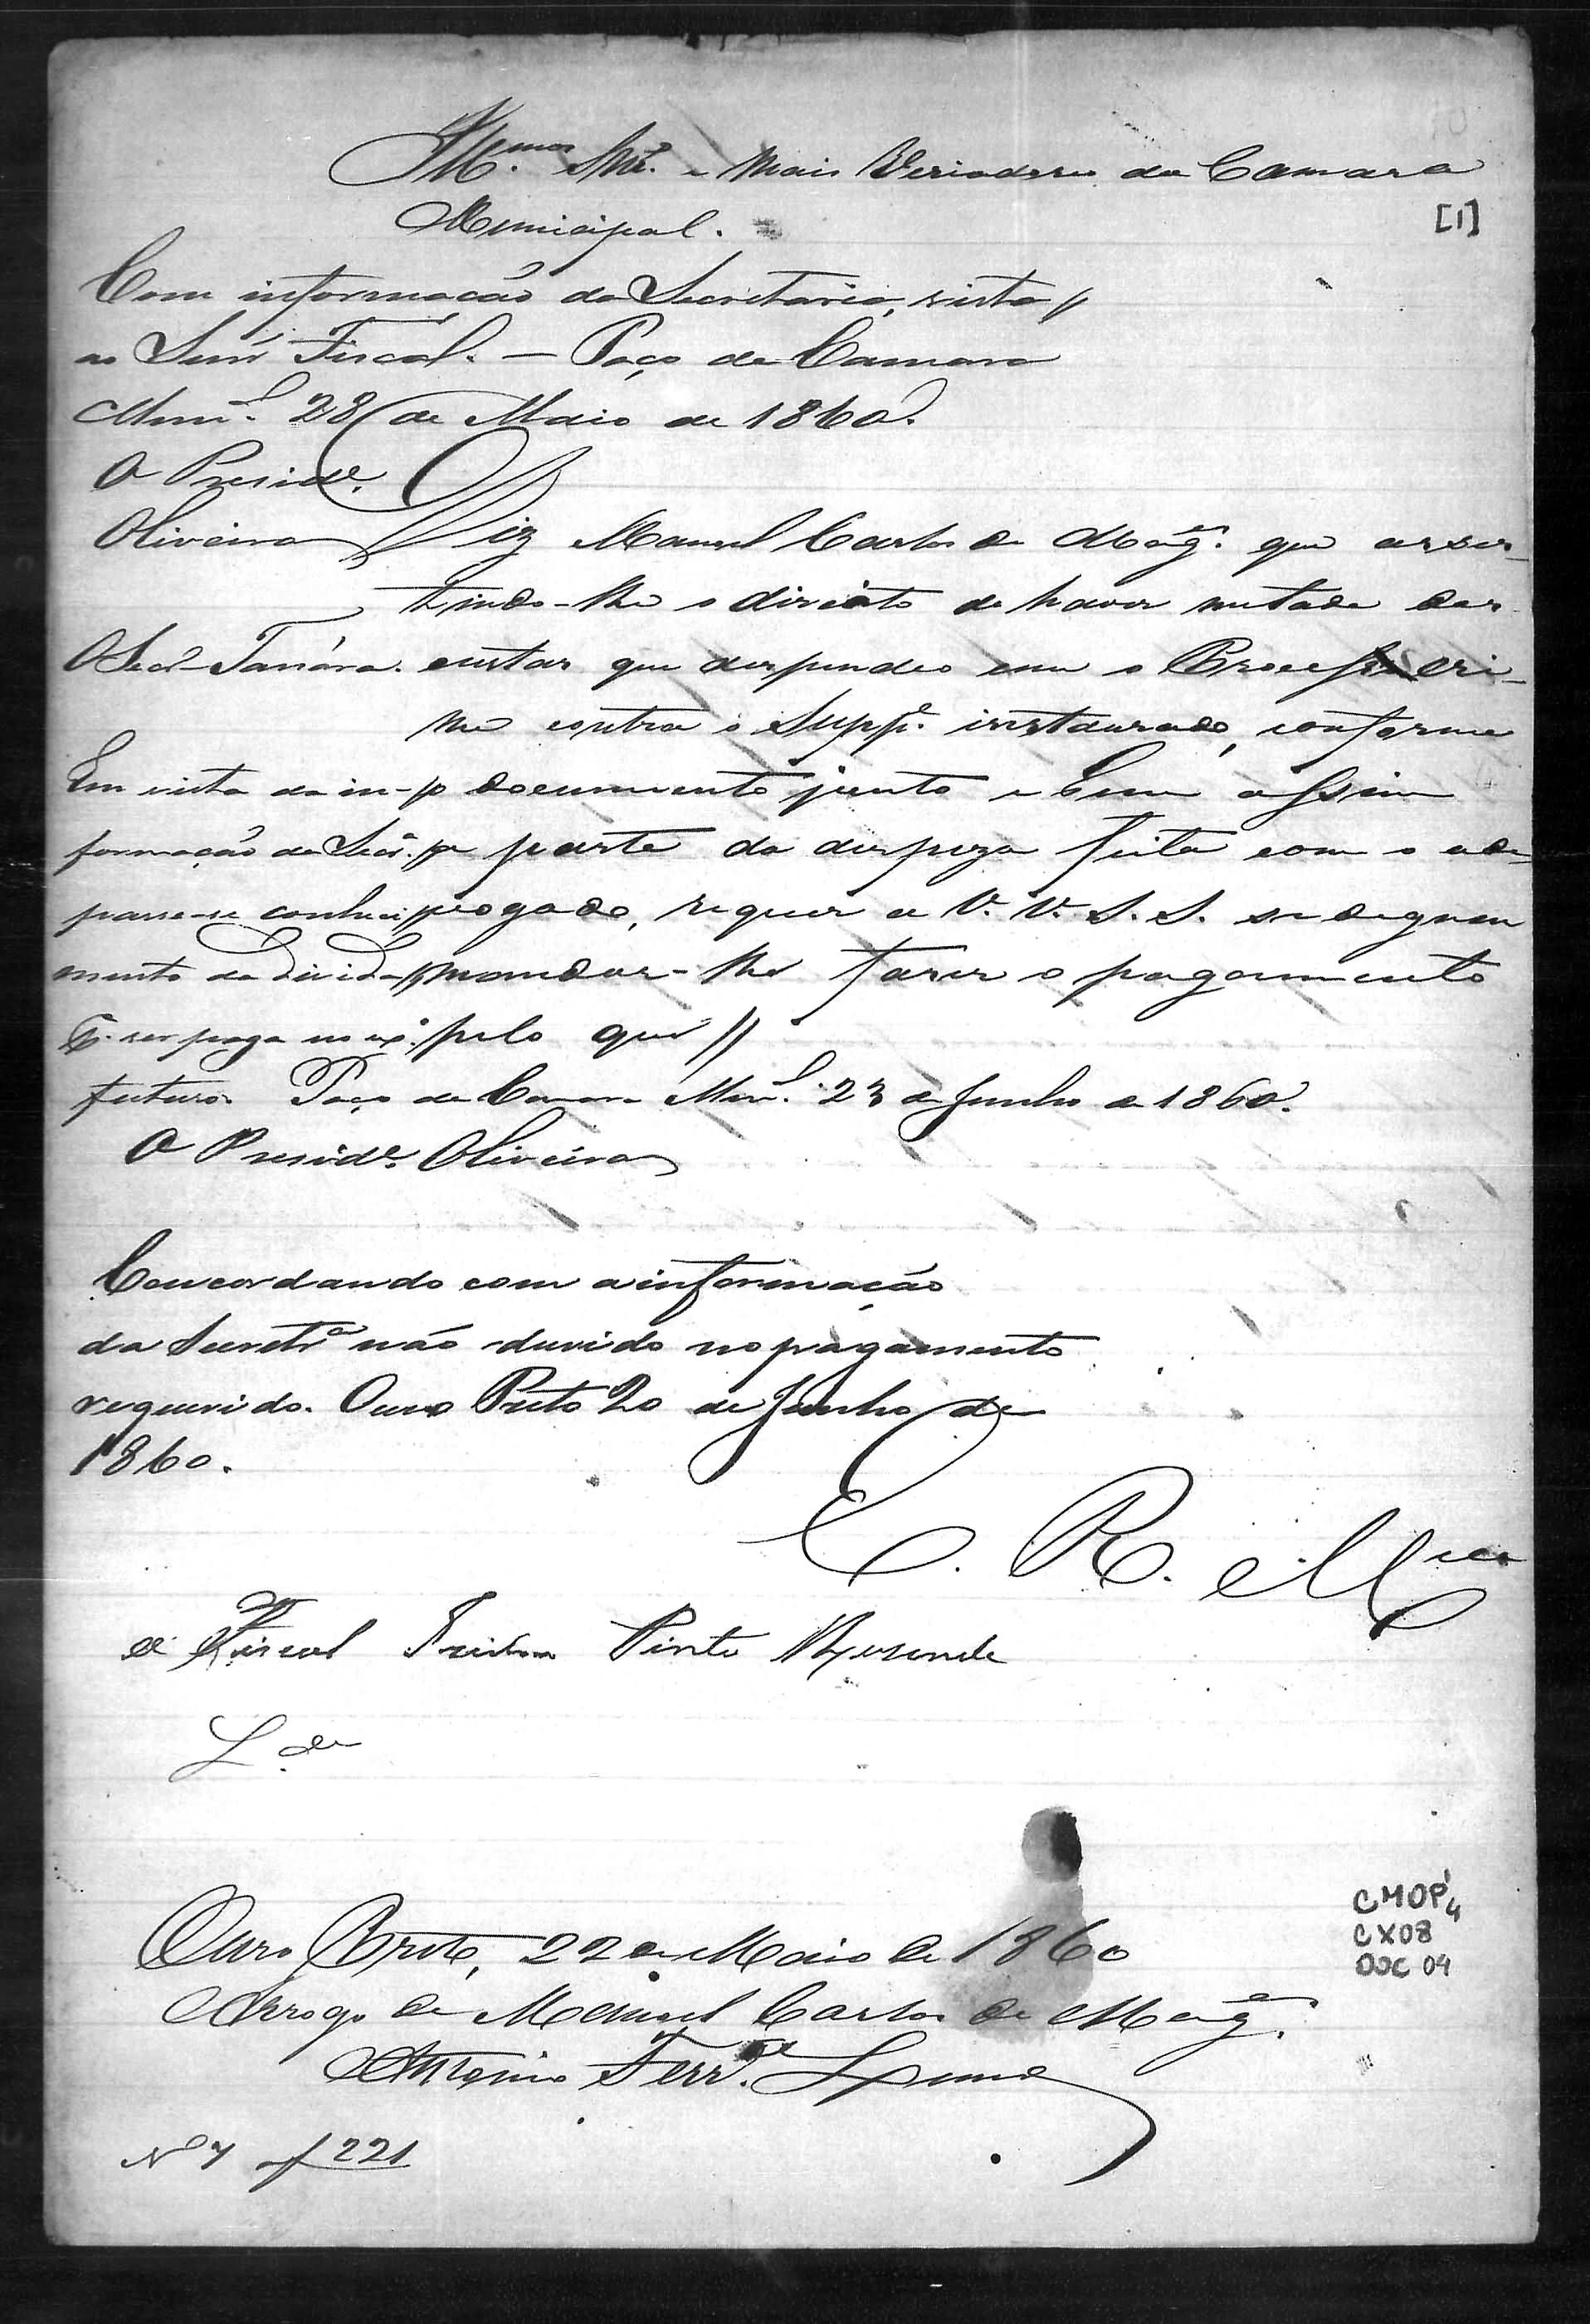 Ill.mos Snr.es e mais Veriadores da Camara
Municipal.
[1]
Com informação da Secretaria, vista
ao Senr Fiscal. — Paço da Camara
Mun.l 28 de Maio de 1860.
O Presid.e
Oliveira
Diz Manoel Carlos de Mag.es que assis-
tindo-lhe o direito de haver metade das
custas que despendeo com o Processo cri-
me contra o Supp.e instaurado, conforme
o documento junto e bem assim
parte da despeza feita com o ade-
vogado, requer a V. V. S. S. se dignem
mandar-lhe fazer o pagamento
pelo que //
O Secr.o
Em vista da in-
formação da Secr.a
passe-se conheci-
mento da divida
p.a ser paga no ex.o
futuro. Paço da Camara Mun.l 23 de Junho de 1860.
O Presid.e Oliveira
Concordando com a informação
da Secretr.a não duvido no pagamento
requerido. Ouro Preto 20 de Junho de
1860.
E. R. M.ce
O Fiscal Pinto Rezende
Ouro Preto, 22 de Maio de 1860
Arrogo de Manoel Carlos de Mag.es
Antonio Ferr.a
CMOP
CX08
DOC 04
Nº 7 f 221